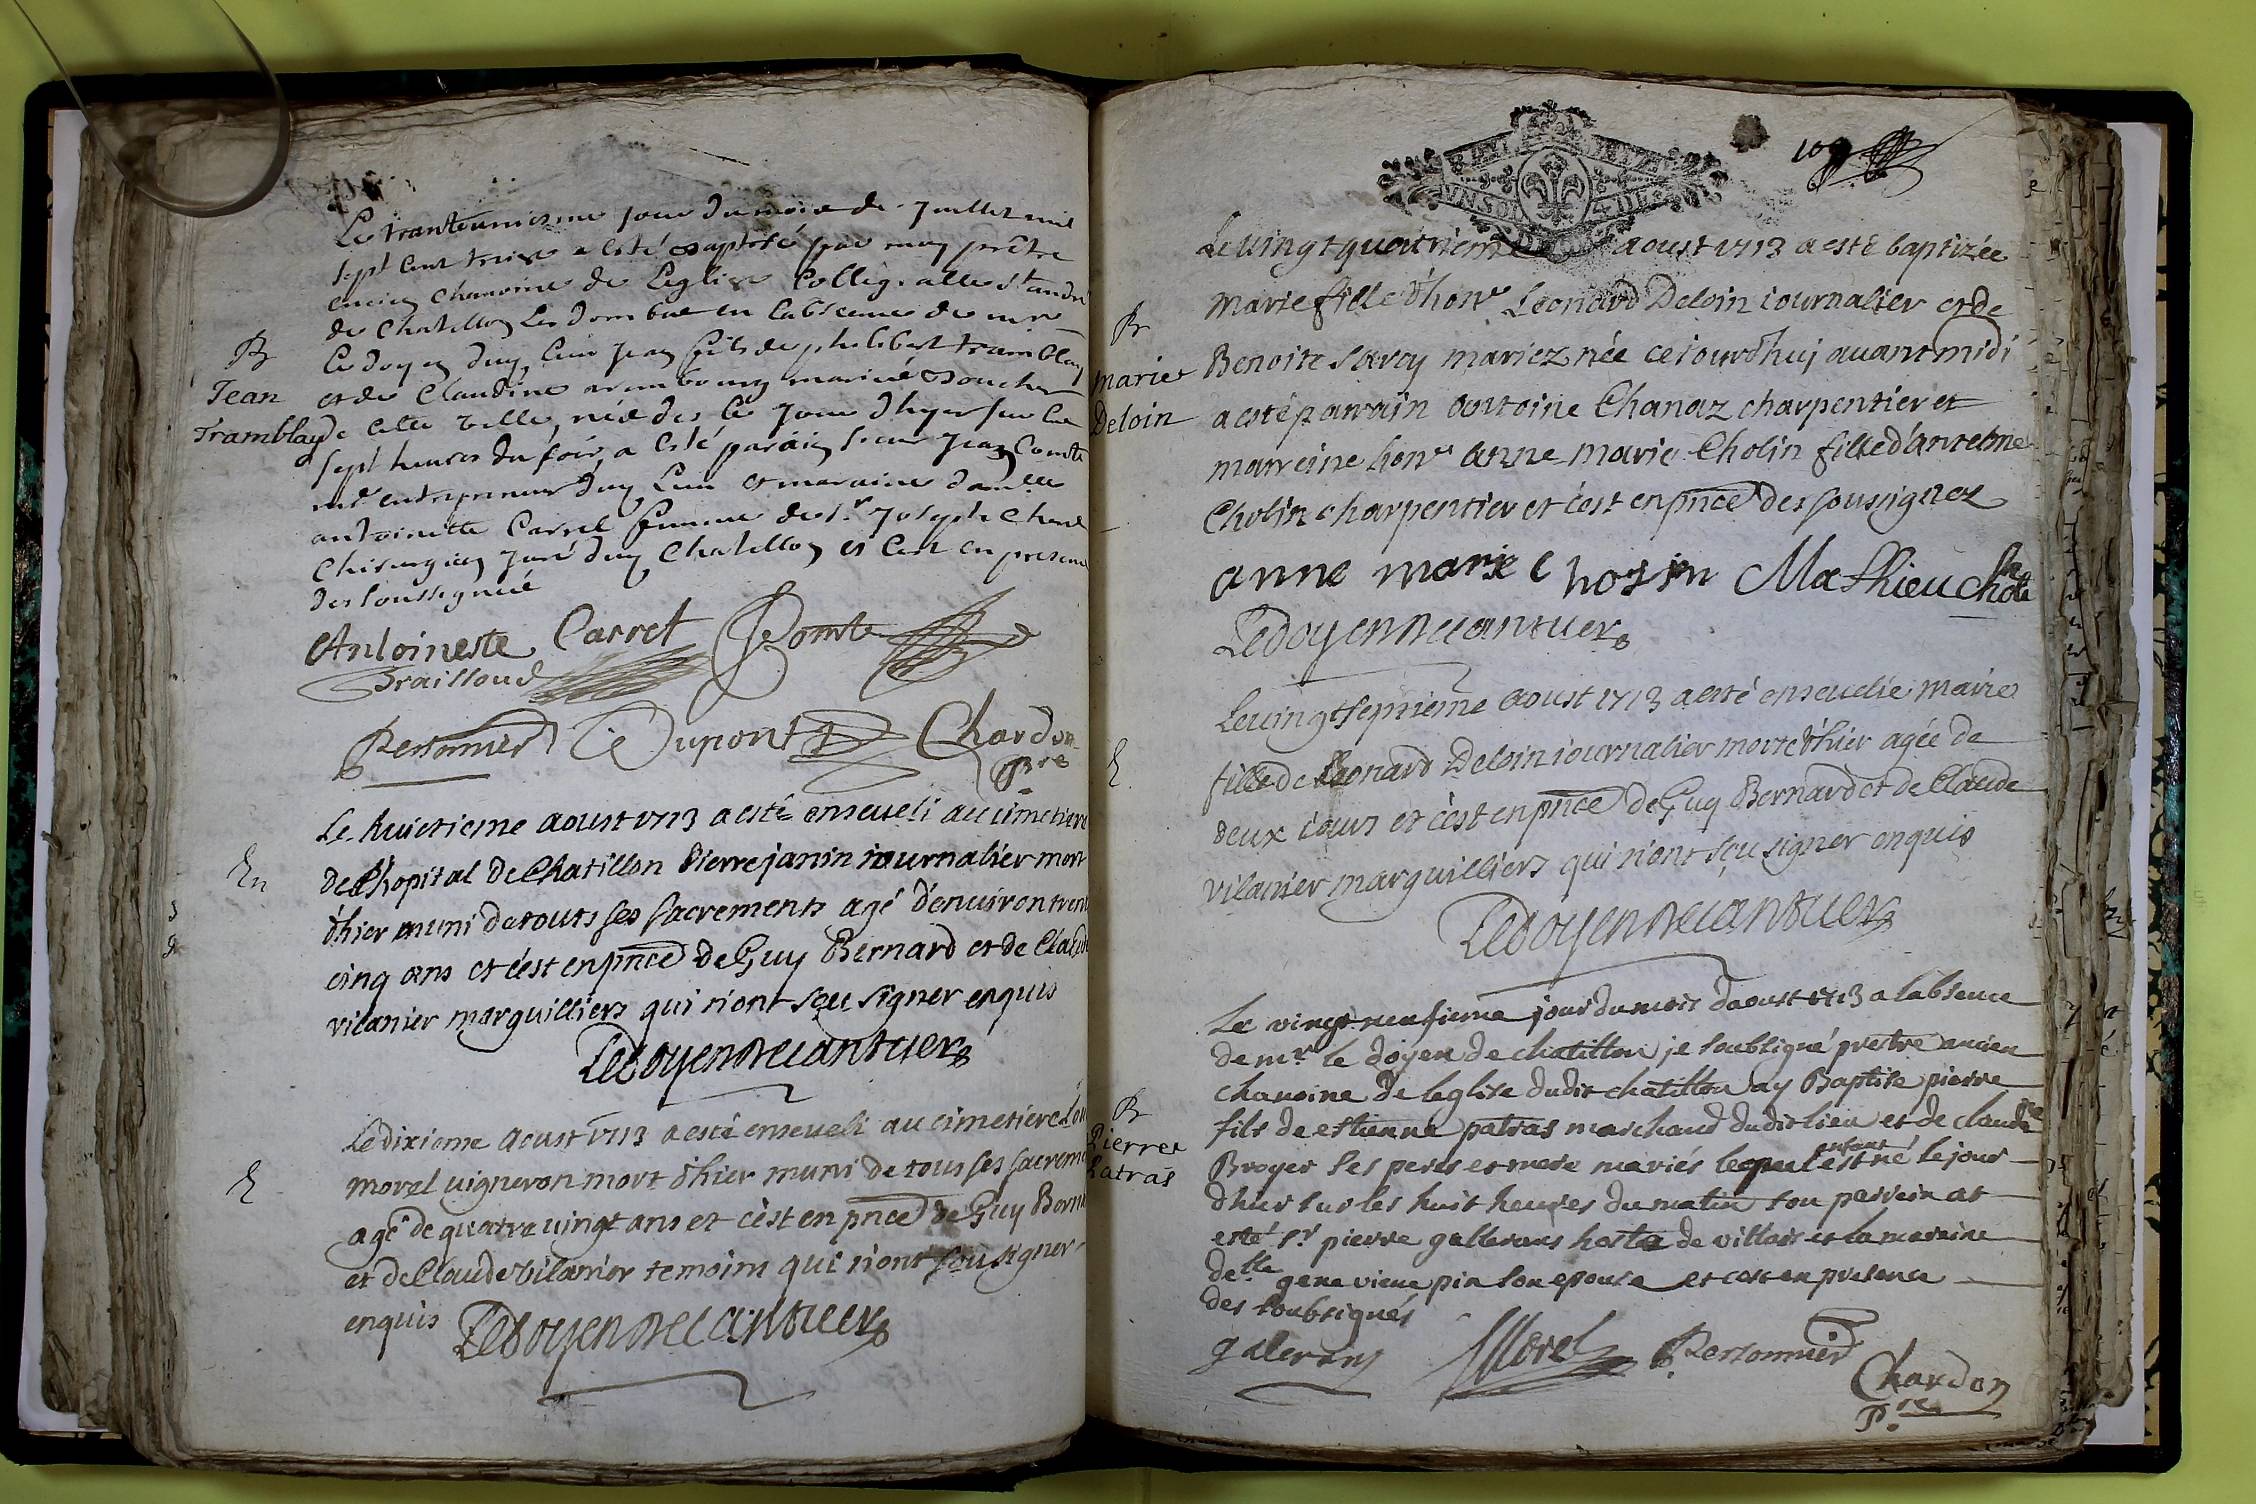 Le tranteuniesme jour du mois de Juillet mil
sept cent treise a esté baptisé par moy prêtre
ancien chanoine de Leglise Collegialle st andré
de Chatillon Les Dombes en l'absence de mr
B
Le doyen dung lieu Jean fils de philibert tramblay
Jean
et de Claudine arembourg mariné Boucher
Tramblay
de cette ville, née des le jour d'hyer sur les
sept heures du soir, a esté parain sieur Jean Comte
md entrepreneur dung Lieu et maraine damlle
antoinette Carrel femme de sr Joseph
Chirurgien juré dung Chatillon et c'est en presence
des soussignés
Antoinette Carret Comte
Braissoud
Personnier Dupont Chardon
pre
Le huictieme aoust 1713 a esté enseveli au cimetiere
En
de l'hopital de Chatillon Pierre janin iournalier mort
d'hier muni de touts ses sacrements agé d'environ trente
cinq ans et c'est en pnce de Guy Bernard et de Claude
vilanier marguilliers qui n'ont sçeu signer enquis
Ledoyen
Le dixieme aoust 1713 a esté enseveli au cimetiere
E
morel vigneron mort d'hier muni de tous ses sacrem
agé de quatre vingt ans et c'est en pnce de Guy Bernard
et de Claude vilanier temoins qui n'ont sçeu signer
enquis Ledoyen
109
Le vingt quatrieme aoust 1713 a esté baptizée
B
marie fille d'hone Leonard Deloin iournalier et de
marie
Benoite Savey mariez née ce iourd'huj avant midi
Deloin
a esté parrain antoine Chanaz charpentier et
marreine hone anne marie Cholin fille d'antelme
Cholin charpentier et c'est en pnce des soussignez
anne marie Mathieu
Ledoyen
Le vingt septieme aoust 1713 a esté ensevelie marie
E
fille de Leonard Deloin iournalier morte d'hier agée de
deux iours et c'est en pnce de Guy Bernard et de Claude
vilanier marguilliers qui n'ont sçu signer enquis
Ledoyen
Le vingt neufieme jour du mois daoust 1713 a labsence
de mr le doyen de chatillon je soubsigné prestre ancien
chanoine de leglise dudit chatillon ay Baptise pierre
B
fils de estienne patras marchand dudit lieu et de claudine
Pierre
Patras
Broyer ses peres et mere mariés lequel enfant est né le jour
dhier sur les huit heures du matin son parrein at
esté sr pierre gallerans hoste de villars et la mareine
delle gene vieve pin son epouse et cest en presence
des soubsignés
galerans Morel Personnier
Chardon
Pre